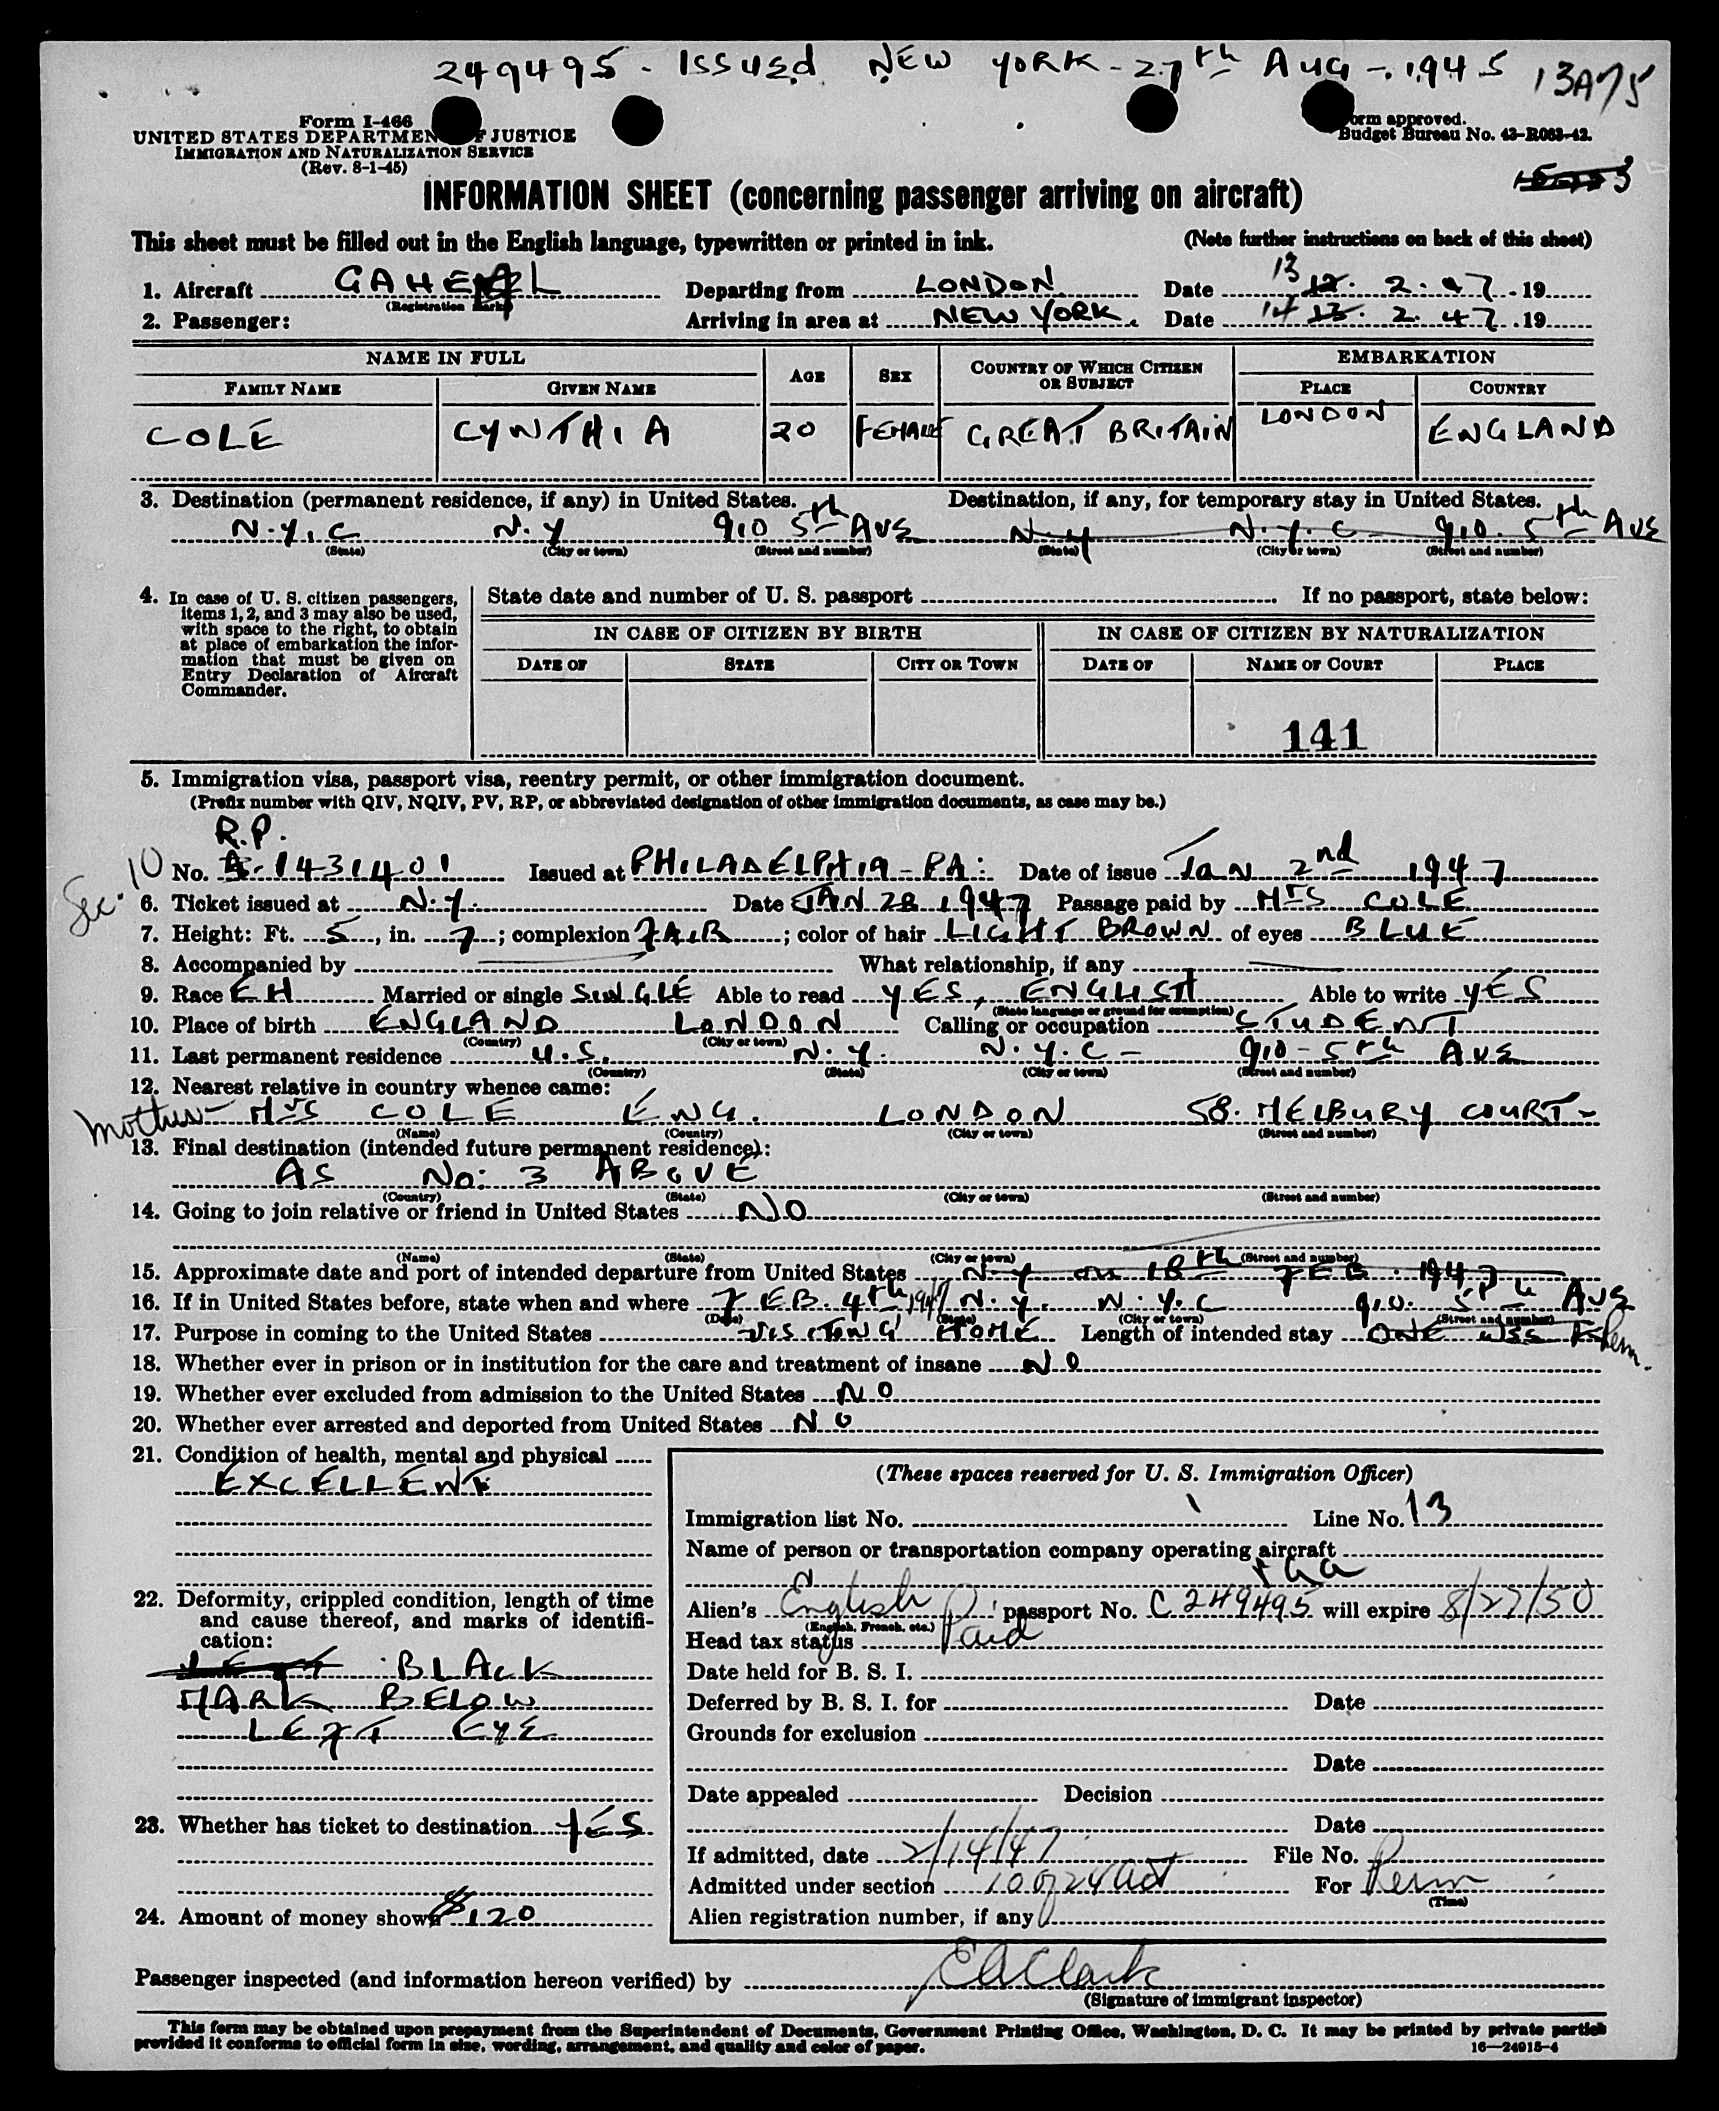 249495 - Issued NEW YORK - 27th Aug - 1945 13A75
Form I-466
UNITED STATES DEPARTMENT OF JUSTICE
IMMIGRATION AND NATURALIZATION SERVICE
(Rev. 8-1-45)
Form approved.
Budget Bureau No. 43-R083-42.
INFORMATION SHEET (concerning passenger arriving on aircraft)
This sheet must be filled out in the English language, typewritten or printed in ink. (Note further instructions on back of this sheet)
1. Aircraft GAHEL Departing from LONDON Date 13 12. 2. 47. 19
(Registration marks)
2. Passenger: Arriving in area at NEW YORK. Date 14 13. 2. 47. 19
NAME IN FULL AGE SEX COUNTRY OF WHICH CITIZEN OR SUBJECT EMBARKATION
FAMILY NAME GIVEN NAME PLACE COUNTRY
COLE CYNTHIA 20 FEMALE GREAT BRITAIN LONDON ENGLAND
3. Destination (permanent residence, if any) in United States. Destination, if any, for temporary stay in United States.
N.Y.C N.Y 910 5th AVE N.Y N.Y.C - 910. 5th AVE
(State) (City or town) (Street and number) (State) (City or town) (Street and number)
4. In case of U. S. citizen passengers, items 1, 2, and 3 may also be used, with space to the right, to obtain at place of embarkation the information that must be given on Entry Declaration of Aircraft Commander.
State date and number of U. S. passport If no passport, state below:
IN CASE OF CITIZEN BY BIRTH IN CASE OF CITIZEN BY NATURALIZATION
DATE OF STATE CITY OR TOWN DATE OF NAME OF COURT PLACE
141
5. Immigration visa, passport visa, reentry permit, or other immigration document.
(Prefix number with QIV, NQIV, PV, RP, or abbreviated designation of other immigration documents, as case may be.)
R.P.
Sec. 10 No. A-1431401 Issued at PHILADELPHIA - PA: Date of issue JAN 2nd 1947
6. Ticket issued at N.Y. Date JAN 28 1947 Passage paid by MRS COLE
7. Height: Ft. 5, in. 7; complexion FAIR; color of hair LIGHT BROWN of eyes BLUE
8. Accompanied by What relationship, if any
9. Race EH Married or single SINGLE Able to read YES, ENGLISH Able to write YES
(State language or ground for exemption)
10. Place of birth ENGLAND LONDON Calling or occupation STUDENT
(Country) (City or town)
11. Last permanent residence U.S. N.Y. N.Y.C - 910 - 5th AVE
(Country) (State) (City or town) (Street and number)
12. Nearest relative in country whence came:
Mother - MRS COLE ENG. LONDON 58. MELBURY COURT -
(Name) (Country) (City or town) (Street and number)
13. Final destination (intended future permanent residence):
AS No: 3 ABOVE
(Country) (State) (City or town) (Street and number)
14. Going to join relative or friend in United States NO
(Name) (State) (City or town) (Street and number)
15. Approximate date and port of intended departure from United States N.Y on 18th FEB. 1947
16. If in United States before, state when and where FEB. 4th 1947 N.Y. N.Y.C 910. 5th AVE
(Date) (State) (City or town) (Street and number)
17. Purpose in coming to the United States VISITING HOME Length of intended stay ONE Perm.
18. Whether ever in prison or in institution for the care and treatment of insane NO
19. Whether ever excluded from admission to the United States NO
20. Whether ever arrested and deported from United States NO
21. Condition of health, mental and physical
EXCELLENT
22. Deformity, crippled condition, length of time and cause thereof, and marks of identification:
BLACK
MARK BELOW
LEFT EYE
23. Whether has ticket to destination YES
24. Amount of money shown $120
(These spaces reserved for U. S. Immigration Officer)
Immigration list No. 1 Line No. 13
Name of person or transportation company operating aircraft
Alien's English passport No. C 249495 will expire 8/27/50
(English, French, etc.)
Head tax status Paid
Date held for B. S. I.
Deferred by B. S. I. for Date
Grounds for exclusion
Date
Date appealed Decision
Date
If admitted, date 2/14/47 File No.
Admitted under section 10 of 24 Act For Perm
(Time)
Alien registration number, if any
Passenger inspected (and information hereon verified) by E A Clark
(Signature of immigrant inspector)
This form may be obtained upon prepayment from the Superintendent of Documents, Government Printing Office, Washington, D. C. It may be printed by private parties
provided it conforms to official form in size, wording, arrangement, and quality and color of paper.
16—24915-4